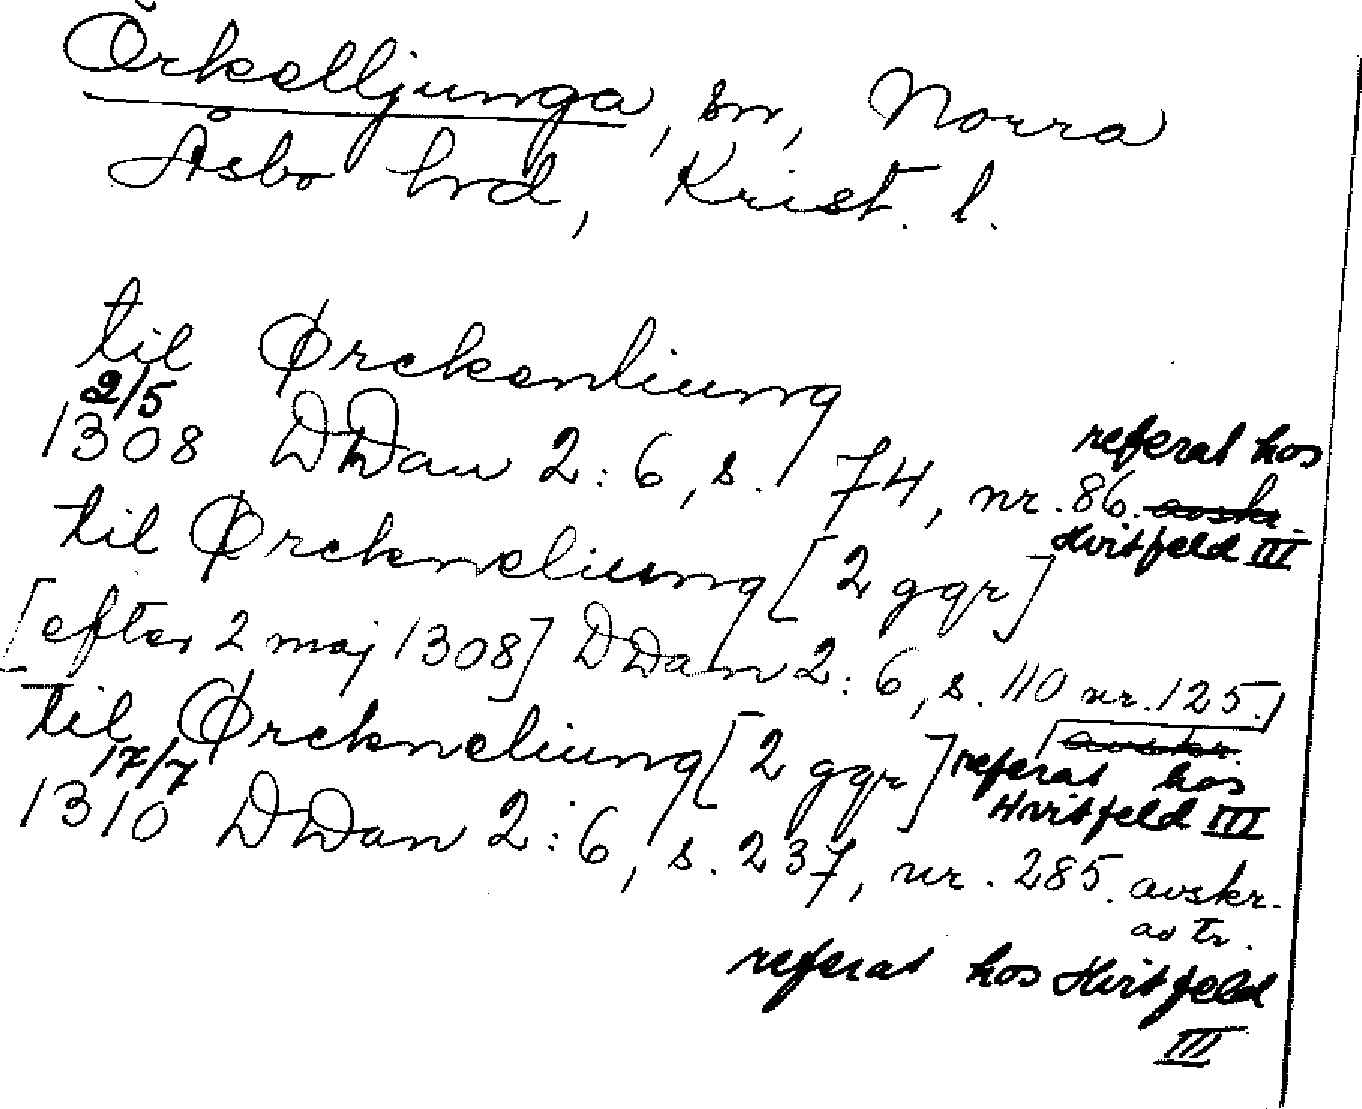 Örkelljunga, sn, Norra
Åsbo hrd, Krist. l.
til Ørckenliung
2/5
1308 DDan 2:6, s. 74, nr. 86. avskr.
referat hos
Hvitfeld III
til Ørckneliung [2 ggr]
[efter 2 maj 1308] DDan 2:6, s. 110 nr. 125.]
til Ørckneliung [2 ggr] [avskr.
referat hos
Hvitfeld III
17/7
1310 DDan 2:6, s. 237, nr. 285. avskr.
av tr.
referat hos Hvitfeld
III